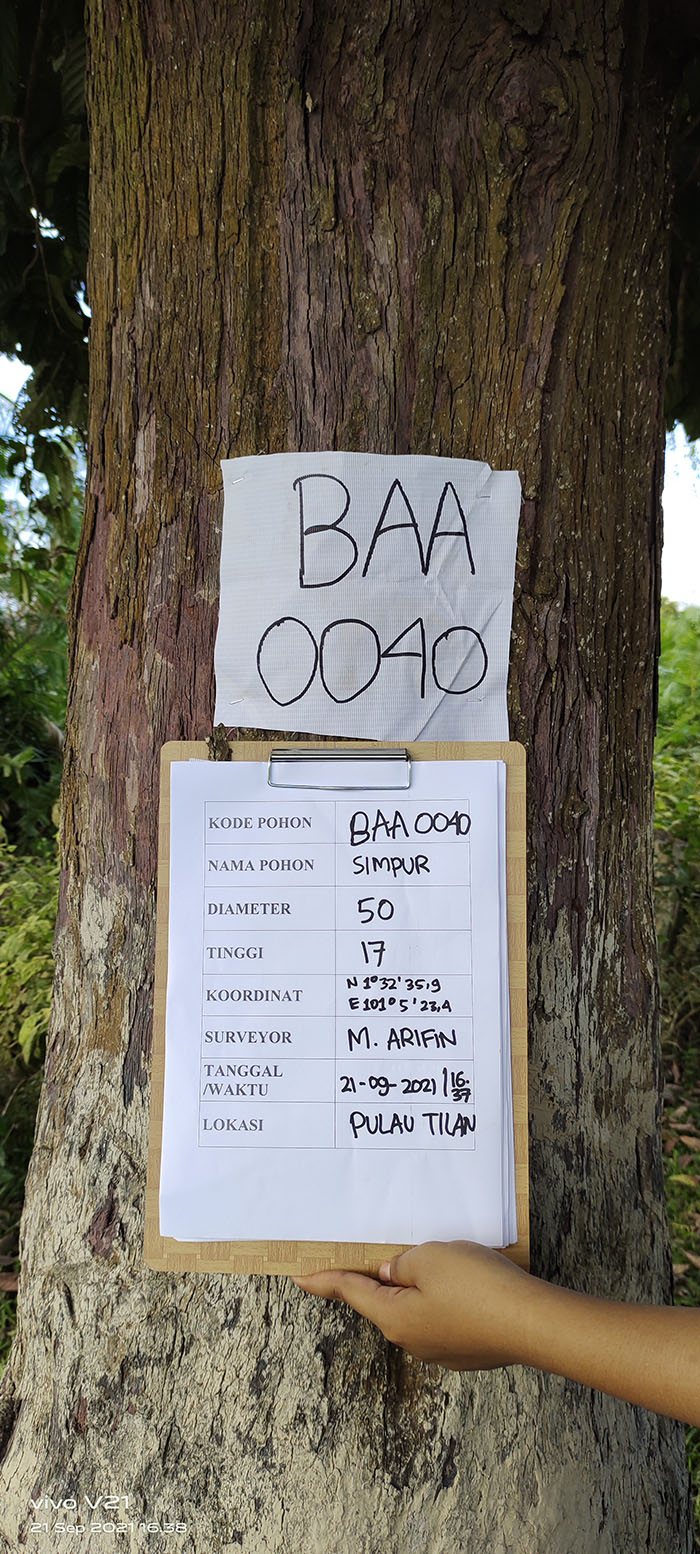 BAA
0040
KODE POHON BAA 0040
NAMA POHON SIMPUR
DIAMETER 50
TINGGI 17
KOORDINAT N 1° 32' 35,9
E 101° 5' 23,4
SURVEYOR M. ARIFIN
TANGGAL
/WAKTU 21-09-2021 / 16.37
LOKASI PULAU TILAN
vivo V21
21 Sep 2021 16.38